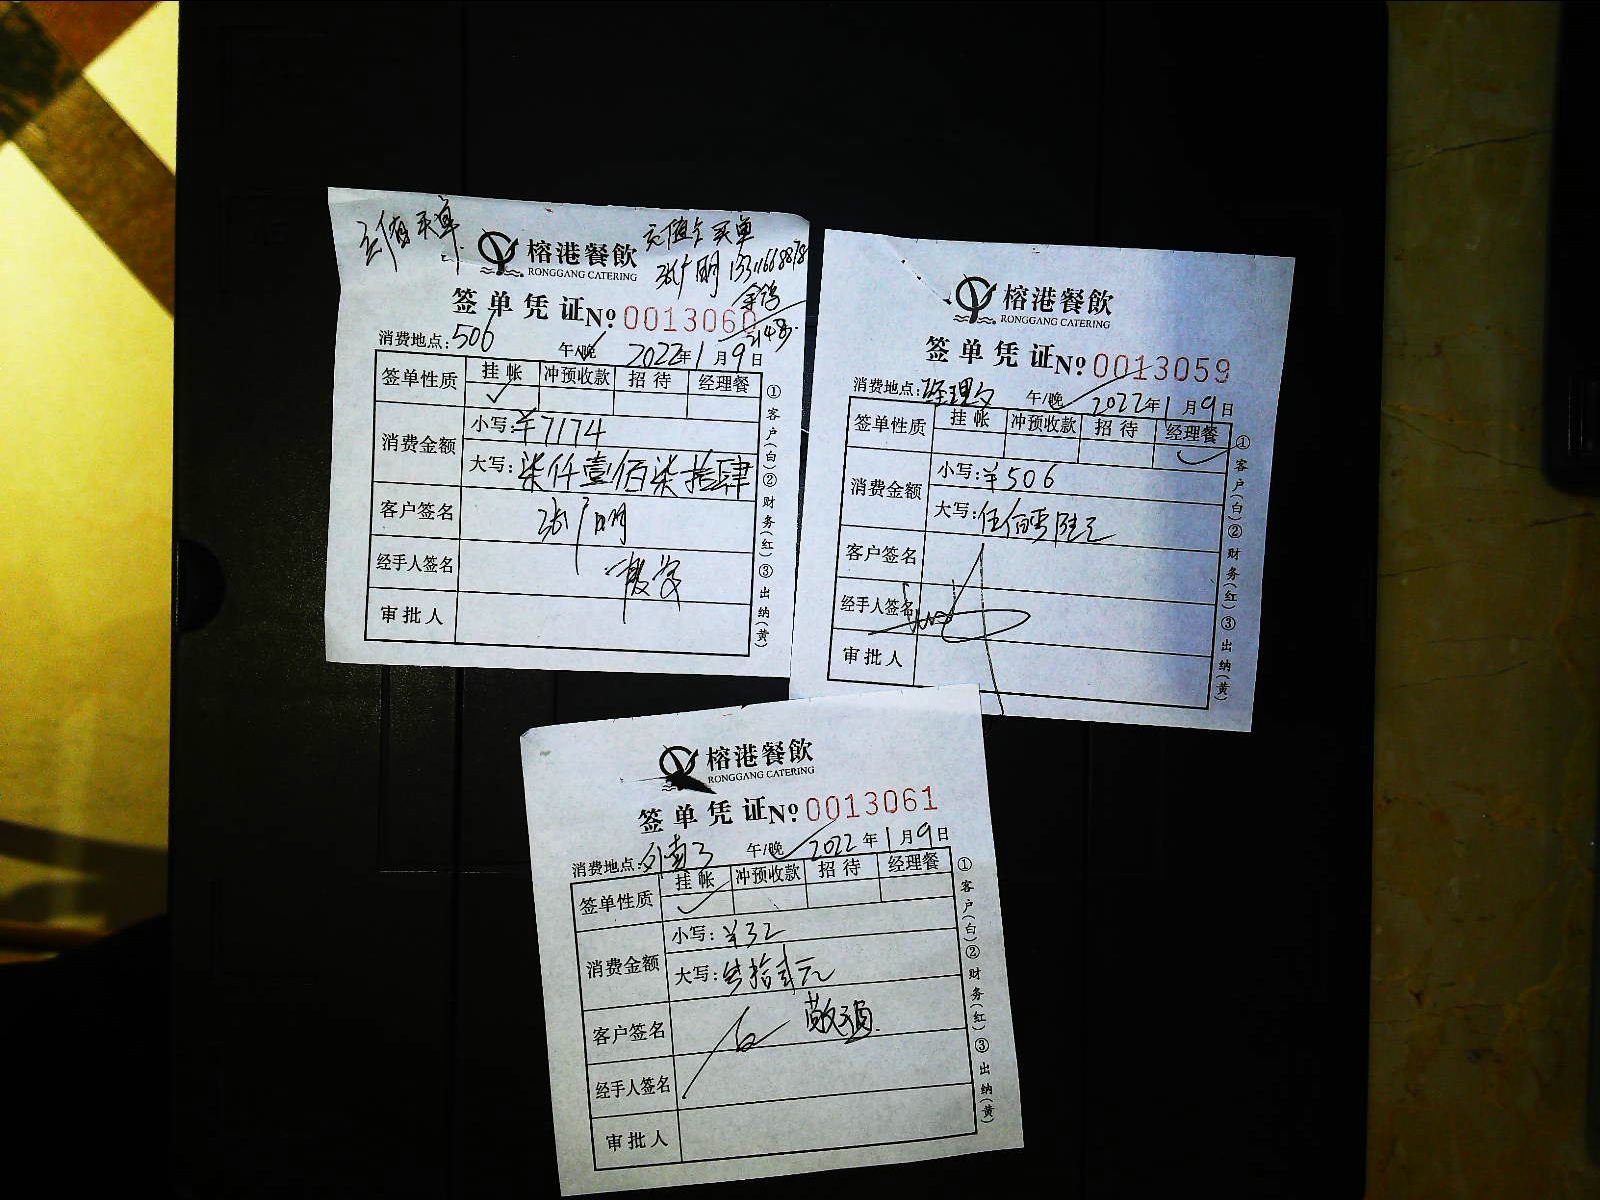 充值买单
榕港餐飲
RONGGANG CATERING
充值卡买单
张广明
余钱
2148.
签单凭证 No 0013060
消费地点：506 午/晚 2022年1月9日
签单性质 挂帐 冲预收款 招待 经理餐
消费金额 小写：¥7174
大写：柒仟壹佰柒拾肆
客户签名 张广明
经手人签名
审批人
①客户(白)②财务(红)③出纳(黄)
榕港餐飲
RONGGANG CATERING
签单凭证 No 0013059
消费地点：经理 午/晚 2022年1月9日
签单性质 挂帐 冲预收款 招待 经理餐
消费金额 小写：¥506
大写：伍佰零陆元
客户签名
经手人签名
审批人
①客户(白)②财务(红)③出纳(黄)
榕港餐飲
RONGGANG CATERING
签单凭证 No 0013061
消费地点：外卖3 午/晚 2022年1月9日
签单性质 挂帐 冲预收款 招待 经理餐
消费金额 小写：¥32
大写：叁拾贰元
客户签名
经手人签名
审批人
①客户(白)②财务(红)③出纳(黄)